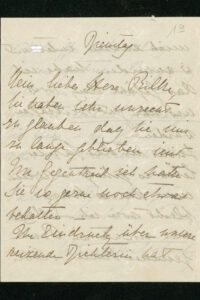 19
Dienstag
Nein, lieber Herr Rilke,
Sie haben sehr unrecht
zu glauben dass Sie uns
zu lange geblieben sind.
Im Gegenteil ich hätte
Sie so gerne noch etwas
behalten.
Im Eindruck, über unsere
reizende Dichterin hat